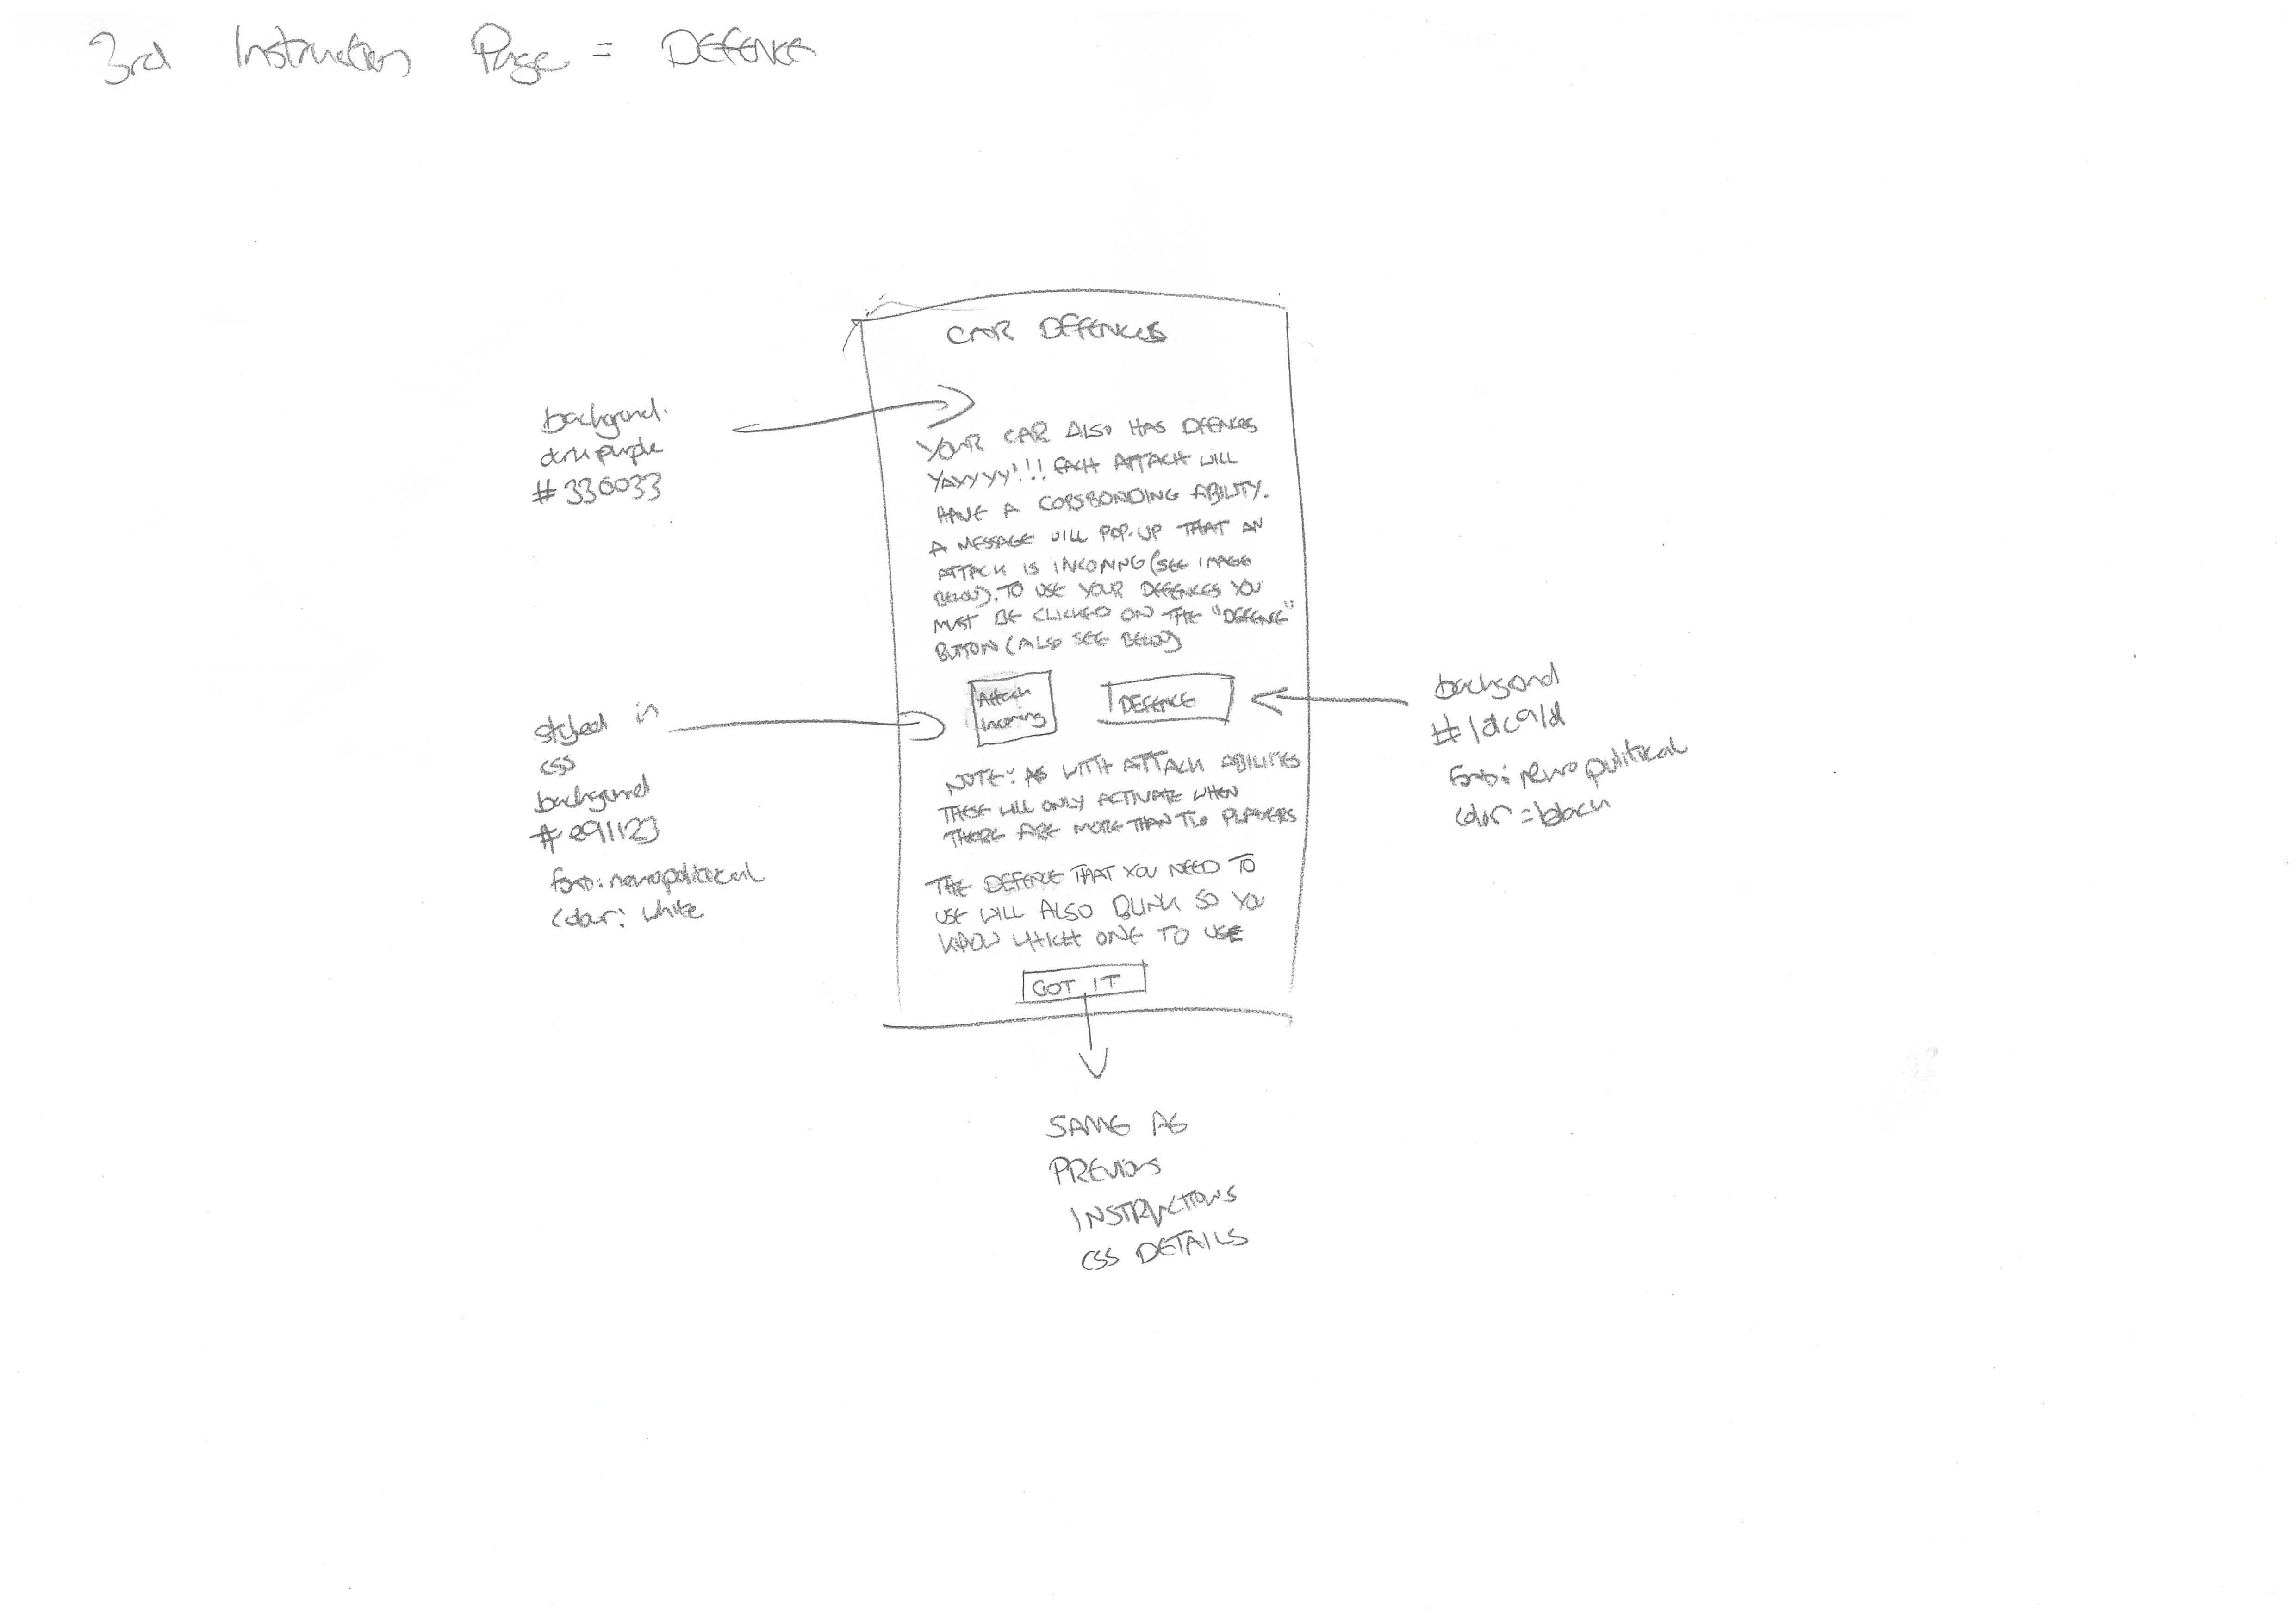 3rd Instruction Page = DEFENCE
CAR DEFENCES
backgrond.
dark purple
#330033
YOUR CAR ALSO HAS DEFENCES
YAYYYY!!! EACH ATTACK WILL
HAVE A CORSBONDING ABILITY.
A MESSAGE WILL POP-UP THAT AN
ATTACK IS INCOMING (SEE IMAGE
BELOW). TO USE YOUR DEFENCES YOU
MUST BE CLICKED ON THE "DEFENCE"
BUTTON (ALSO SEE BELOW)
Attack
Incoming
DEFENCE
styled in
css
background
#e91123
font: neuropolitical
Colour: white
backgrond
#1dc91d
font: neuropolitical
colour = black
NOTE: AS WITH ATTACK ABILITIES
THESE WILL ONLY ACTIVATE WHEN
THERE ARE MORE THAN TWO PLAYERS
THE DEFENCE THAT YOU NEED TO
USE WILL ALSO BLINK SO YOU
KNOW WHICH ONE TO USE
GOT IT
SAME AS
PREVIOUS
INSTRUCTIONS
CSS DETAILS